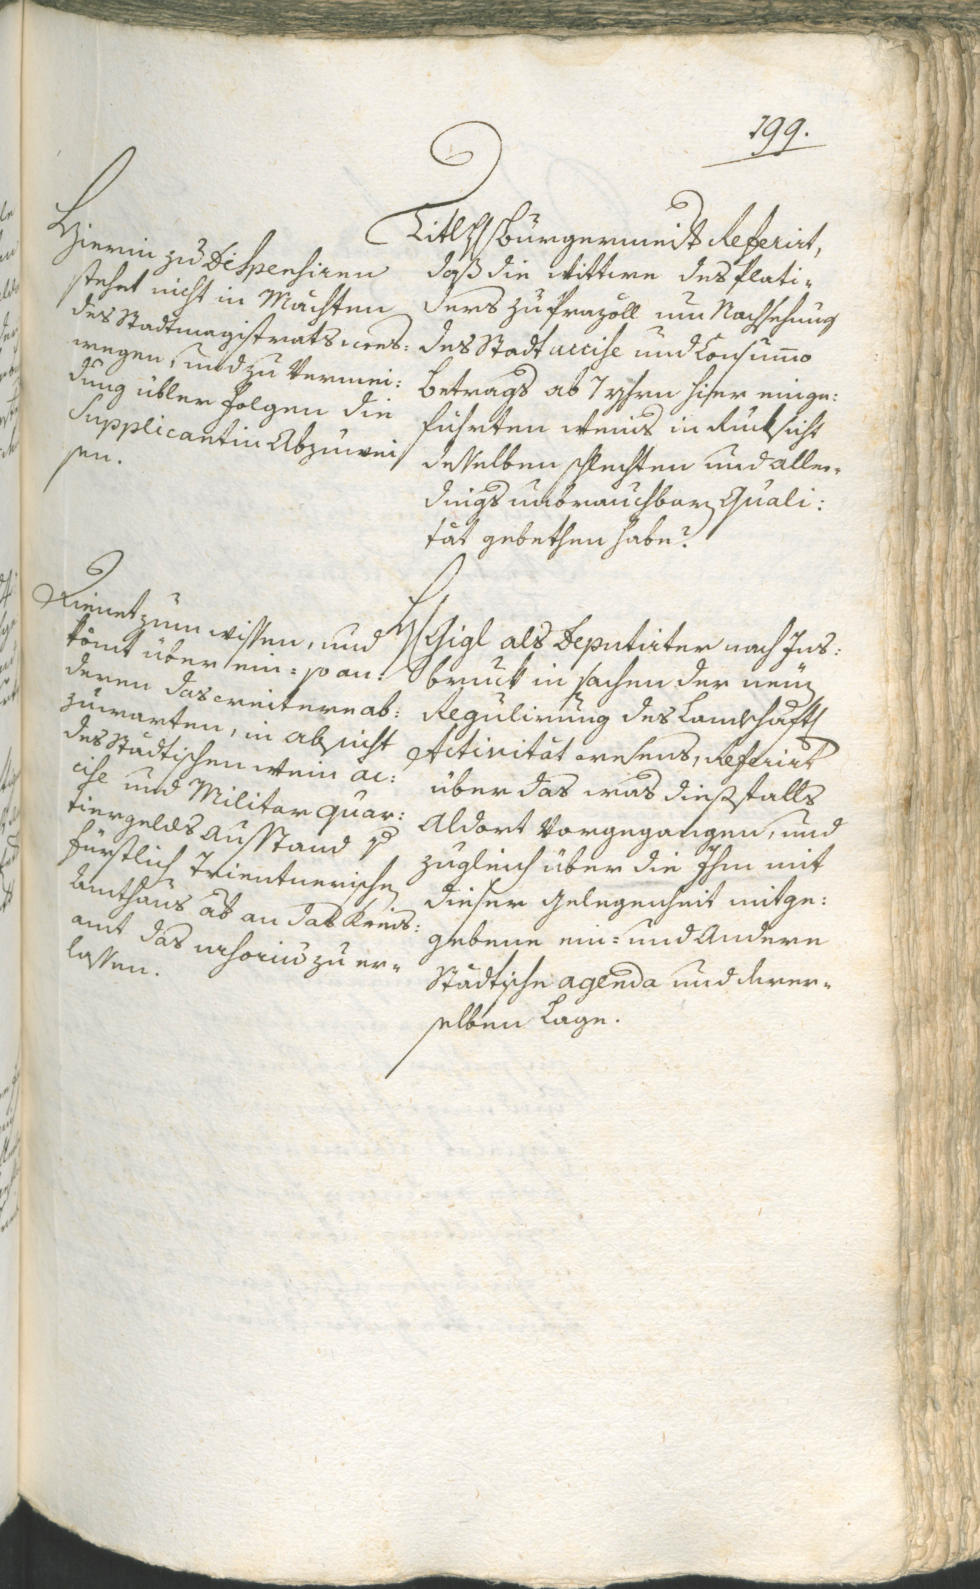 199.
Hierin zu Dispensiren
stehet nicht in Mächten
des Stadtmagistrats wes=
wegen, und zu Vermei=
dung übler folgen die
Supplicantin Abzuwei
sen.
Titl H Bürgermeistr Referirt,
daß die Wittwe des Plati=
ders zu Prazöll um Nachsehung
des Stadt accise und Consumo
betrags ab 7 yhrn hier einge=
führten Weins in Rucksicht
desselben schlechten und aller=
dings unbrauchbaren Quali=
tät gebethen habe?
Dienet zum wissen, und
kömt über ein= so an=
deren das weitere ab=
zuwarten, in absicht
des Städtischen Wein ac=
cise und Militar Quar=
tiergelds Ausstand
fürstlich Trientnerischen
Amthaus ab an das Kreis=
amt das zu er=
lassen.
H Gigl als Deputirter nach Ins=
bruck in sachen der neuen
Regulirung des Landschafts
Activität wesens, Referirt
über das was dießfalls
Aldort Vorgegangen, und
zugleich über die Ihm mit
dieser Gelegenheit mitge=
gebene ein= und Andere
Städtische agenda und derer=
selben Lage.